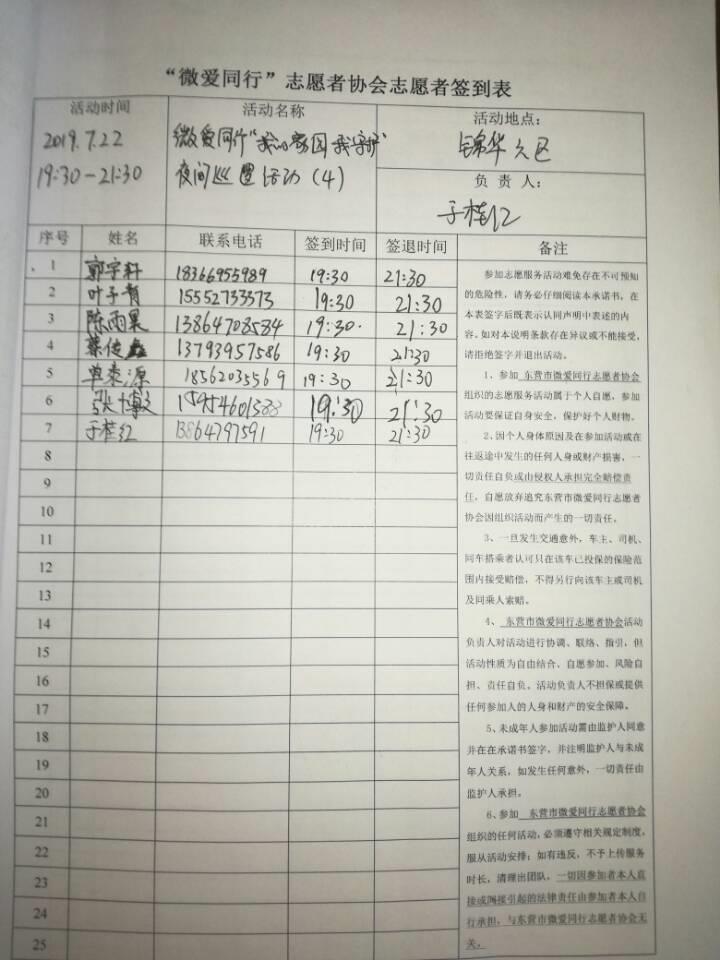 “微爱同行”志愿者协会志愿者签到表
活动时间 活动名称 活动地点：
2019.7.22 微爱同行“我的家园我守护” 锦华六区
19:30-21:30 夜间巡逻活动（4） 负责人：
于桂红
序号 姓名 联系电话 签到时间 签退时间 备注
1 郭宇轩 18366955989 19:30 21:30
2 叶子青 15552733373 19:30 21:30
3 陈雨果 13864708584 19:30 21:30
4 蔡传鑫 13793957586 19:30 21:30
5 单荣源 18562035569 19:30 21:30
6 张博文 15954601388 19:30 21:30
7 于桂红 13864797591 19:30 21:30
8
9
10
11
12
13
14
15
16
17
18
19
20
21
22
23
24
25
参加志愿服务活动难免存在不可预知
的危险性，请务必仔细阅读本承诺书，在
本表签字后既表示认同声明中表述的内
容。如对本说明条款存在异议或不能接受，
请拒绝签字并退出活动。
1、参加 东营市微爱同行志愿者协会
组织的志愿服务活动属于个人自愿，参加
活动要保证自身安全，保护好个人财物。
2、因个人身体原因及在参加活动或在
往返途中发生的任何人身或财产损害，一
切责任自负或由侵权人承担完全赔偿责
任，自愿放弃追究东营市微爱同行志愿者
协会因组织活动而产生的一切责任。
3、一旦发生交通意外，车主、司机、
同车搭乘者认可只在该车已投保的保险范
围内接受赔偿，不得另行向该车主或司机
及同乘人索赔。
4、 东营市微爱同行志愿者协会活动
负责人对活动进行协调、联络、指引，但
活动性质为自由结合、自愿参加、风险自
担、责任自负。活动负责人不担保或提供
任何参加人的人身和财产的安全保障。
5、未成年人参加活动需由监护人同意
并在在承诺书签字，并注明监护人与未成
年人关系，如发生任何意外，一切责任由
监护人承担。
6、参加 东营市微爱同行志愿者协会
组织的任何活动，必须遵守相关规定制度，
服从活动安排；如有违反，不予上传服务
时长，清理出团队，一切因参加者本人直
接或间接引起的法律责任由参加者本人自
行承担，与东营市微爱同行志愿者协会无
关。